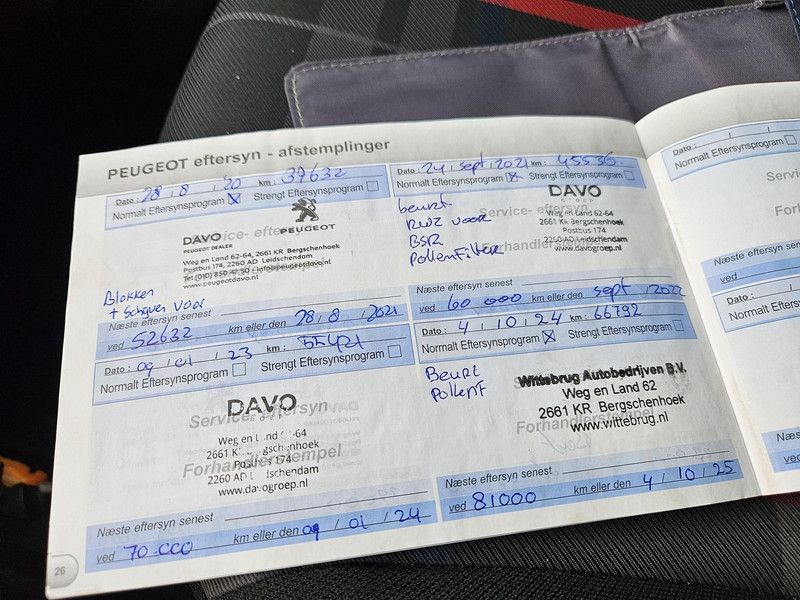 PEUGEOT eftersyn - afstemplinger
Dato: 28 / 8 / '20 km: 39632
Normalt Eftersynsprogram ☒ Strengt Eftersynsprogram ☐
Service- eftersyn
PEUGEOT
DAVO
PEUGEOT DEALER
Weg en Land 62-64, 2661 KR Bergschenhoek
Postbus 174, 2260 AD Leidschendam
Tel (010) 850 47 50 - info@peugeotdavo.nl
www.peugeotdavo.nl
Blokken
+ schijven voor
Næste eftersyn senest
ved 52632 km eller den 28 / 8 / 2021
Dato: 24 / sept / 2021 km: 45536
Normalt Eftersynsprogram ☒ Strengt Eftersynsprogram ☐
beurt
RWZ voor
BSR
PollenFilter
Service- eftersyn
DAVO
Weg en Land 62-64
2661 KR Bergschenhoek
Postbus 174
2260 AD Leidschendam
www.davogroep.nl
Næste eftersyn senest
ved 60 000 km eller den sept / 2022
Dato: 09 / 01 / 23 km: 55421
Normalt Eftersynsprogram ☐ Strengt Eftersynsprogram ☐
DAVO
Service- eftersyn
Weg en Land 62-64
2661 KR Bergschenhoek
Forhandlerstempel
Postbus 174
2260 AD Leidschendam
www.davogroep.nl
Næste eftersyn senest
ved 70.000 km eller den 09 / 01 / 24
Dato: 4 / 10 / 24 km: 66792
Normalt Eftersynsprogram ☒ Strengt Eftersynsprogram ☐
Beurt
PollenF
Wittebrug Autobedrijven B.V.
Weg en Land 62
2661 KR Bergschenhoek
Forhandlerstempel
www.wittebrug.nl
Næste eftersyn senest
ved 81000 km eller den 4 / 10 / 25
26
Dato: / /
Normalt Eftersynsprogram ☐
Servic
Forhan
Næste eftersyn senest
ved
Dato: / /
Normalt Eftersynsprogram
Ser
Forha
Næste
ved